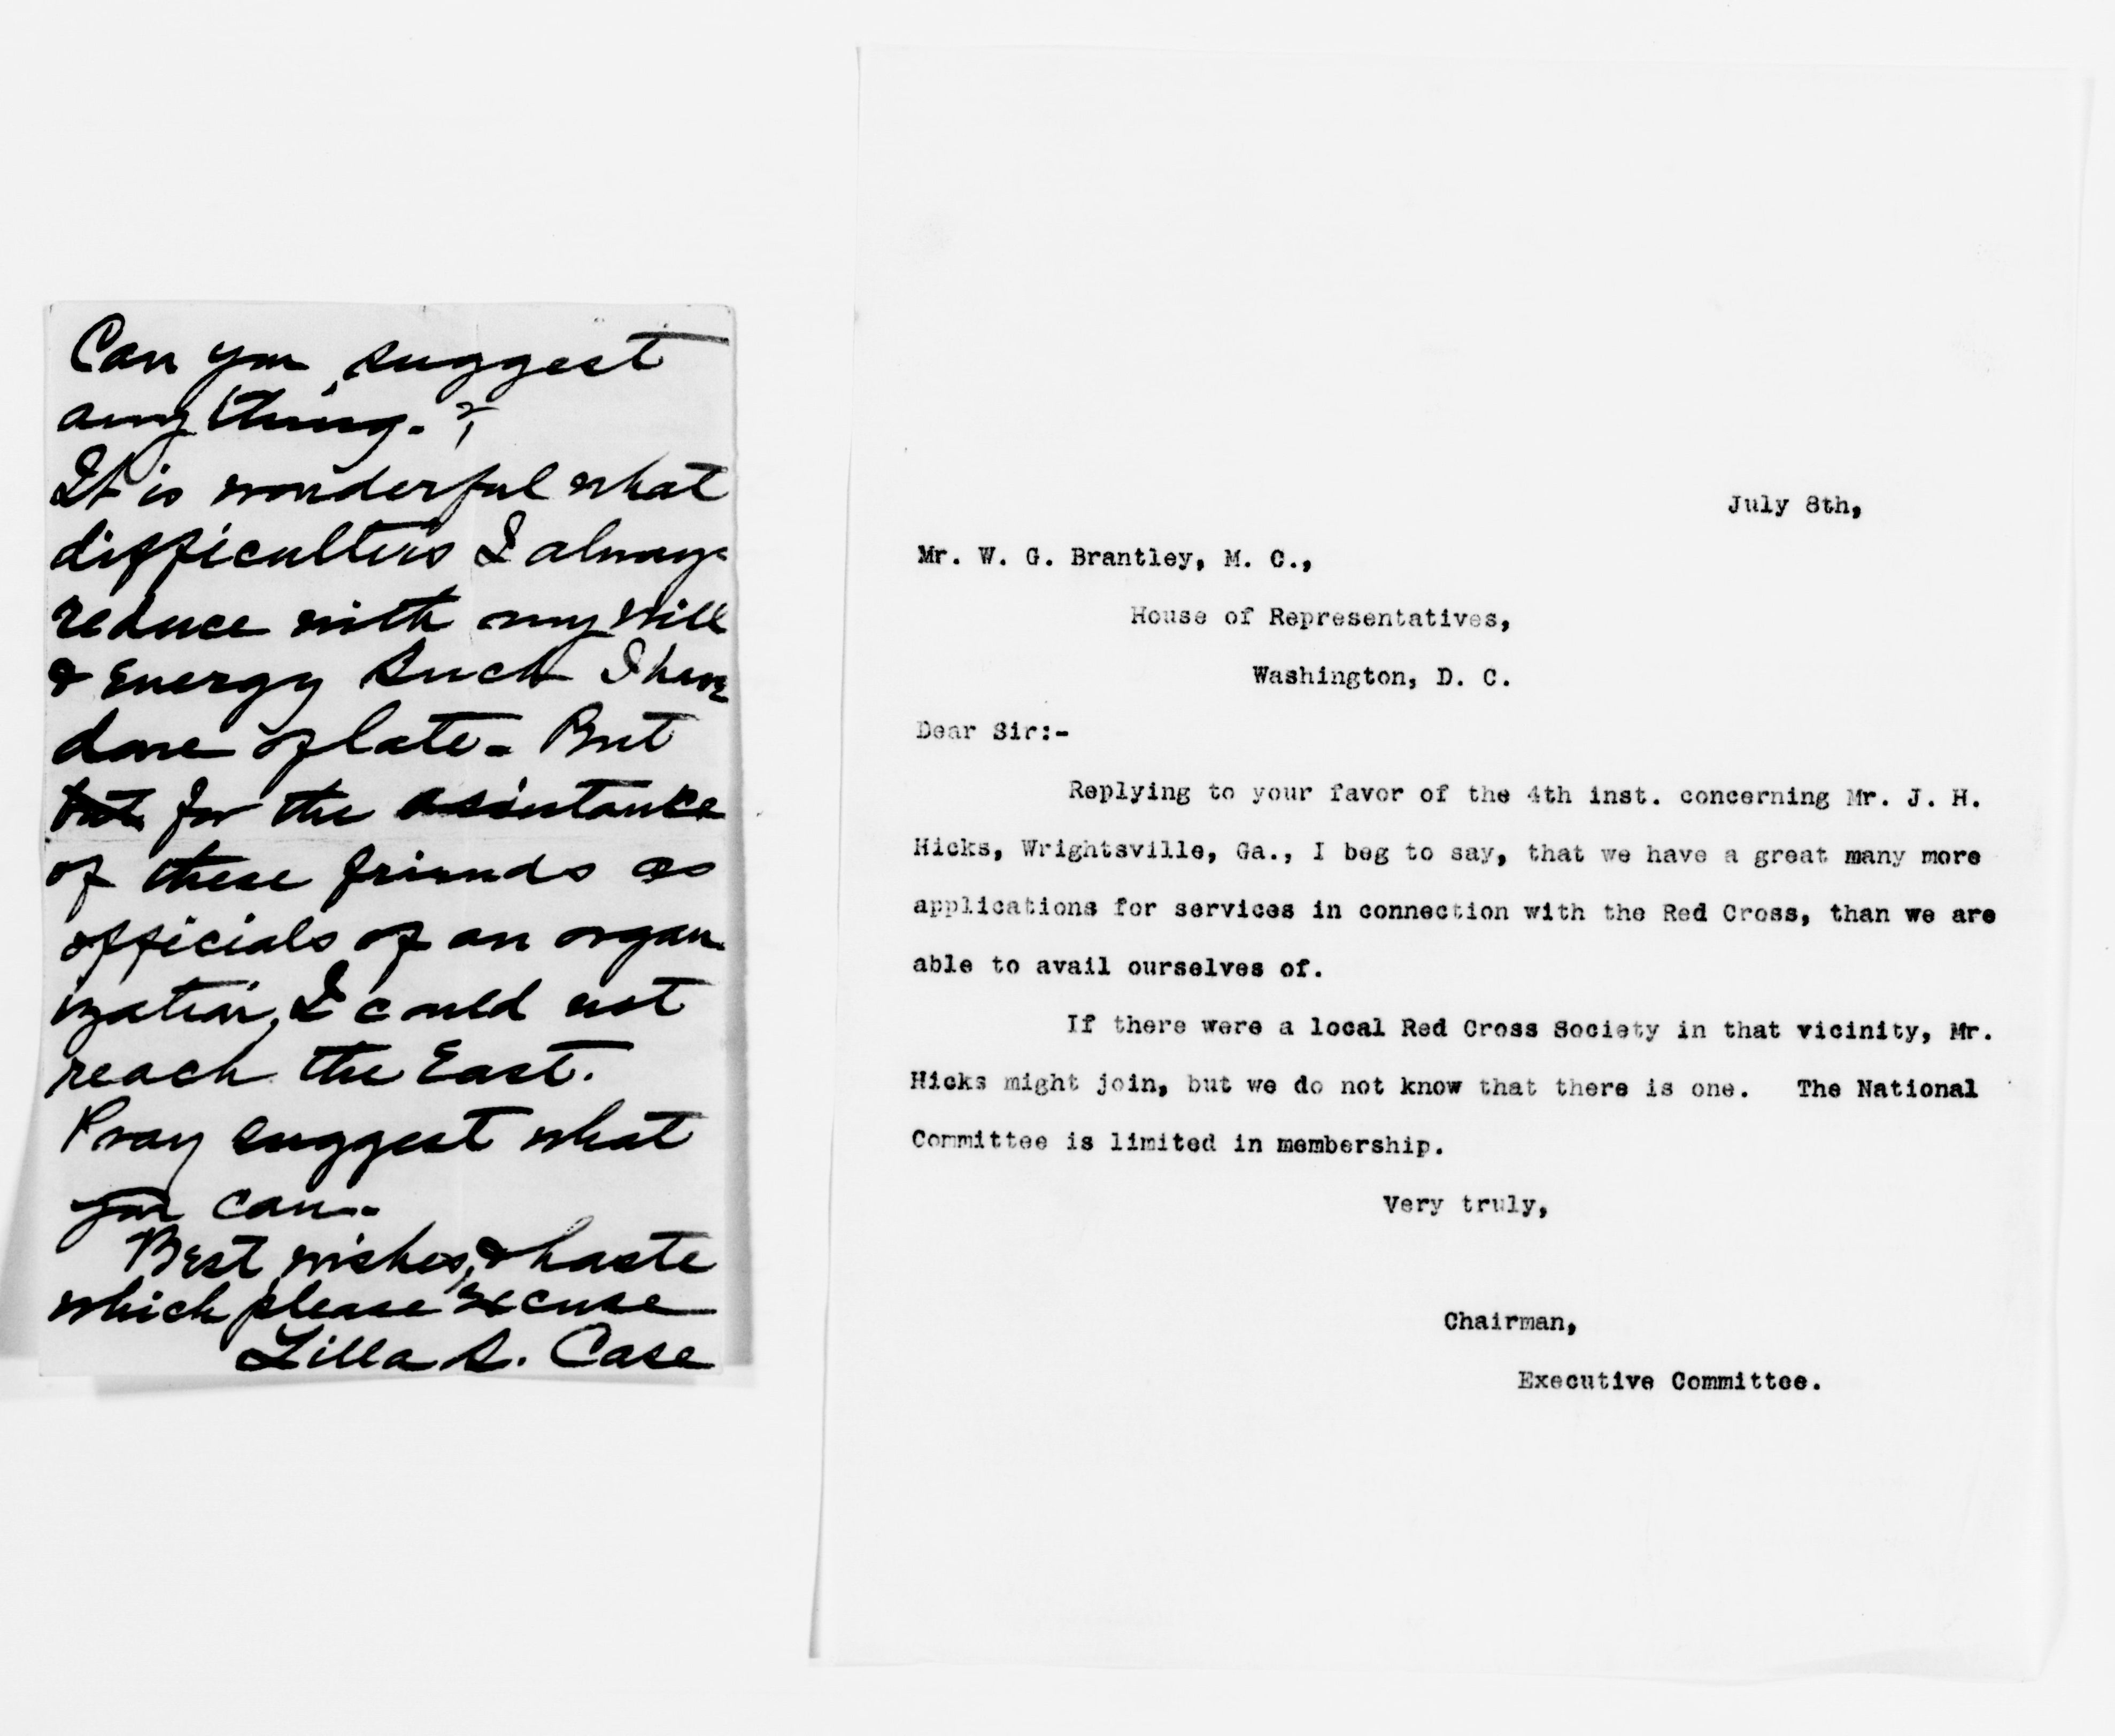 Can you suggest
anything.?
It is wonderful what
difficulties I always
reduce with my will
& energy such I have
done of late - But
but for the assistance
of these friends as
officials of an organ
ization, I could not
reach the East.
Pray suggest what
you can -
Best wishes, & haste
which please excuse
Lilla S. Case
July 8th,
Mr. W. G. Brantley, M. C.,
House of Representatives,
Washington, D. C.
Dear Sir:-
Replying to your favor of the 4th inst. concerning Mr. J. H.
Hicks, Wrightsville, Ga., I beg to say, that we have a great many more
applications for services in connection with the Red Cross, than we are
able to avail ourselves of.
If there were a local Red Cross Society in that vicinity, Mr.
Hicks might join, but we do not know that there is one. The National
Committee is limited in membership.
Very truly,
Chairman,
Executive Committee.